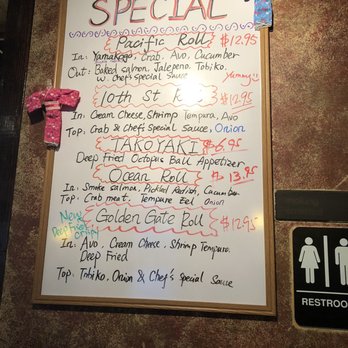 SPECIAL
Pacific Roll $12.95
In: Yamakogo, Crab, Avo, Cucumber
Out: Baked salmon, Jalepeno, Tobiko,
w. chef's special Sauce Yummy
10th St Roll $12.95
In: Cream Cheese, Shrimp Tempura, Avo
Top: Crab & Chef's Special Sauce, Onion
TAKOYAKI $6.95
Deep Fried Octopus Ball Appetizer
Ocean Roll $13.95
In: Smoke salmon, Pickled Radish, Cucumber
Top: Crab meat, Tempura Eel Onion
New Deep Fried Golden Gate Roll $12.95
In: Avo, Cream Cheese, Shrimp Tempura.
Deep Fried
Top: Tobiko, Onion & Chef's Special Sauce
RESTROO